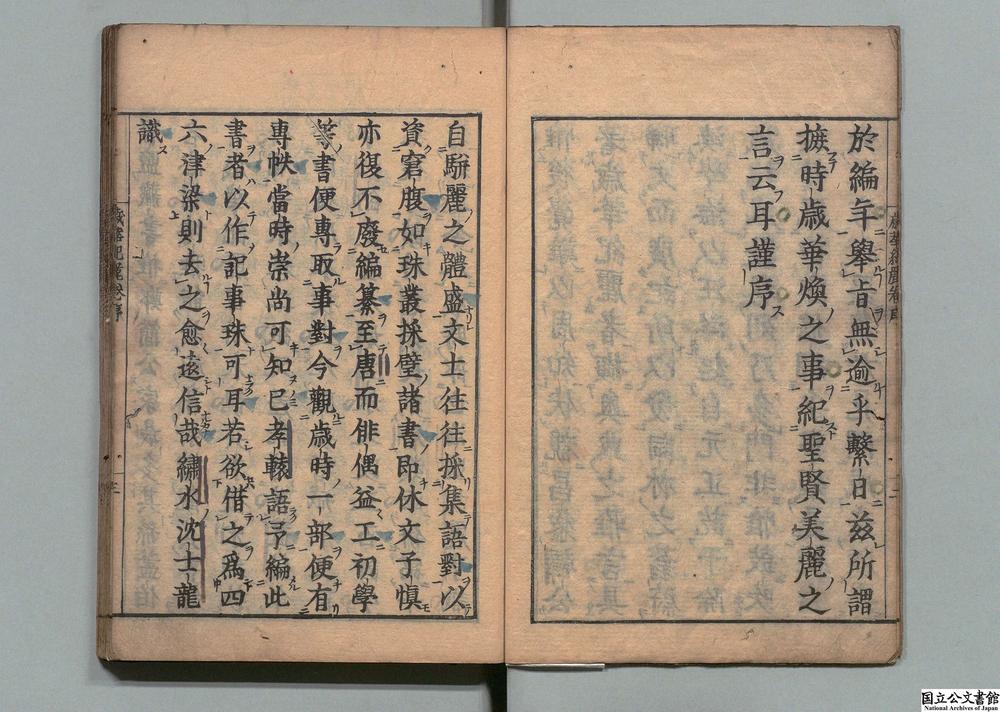 於編年舉旨無逾乎繫日茲所謂
摭時歲華煥之事紀聖賢美麗之
言云耳謹序
自駢麗之體盛文士往往採集語對以
資窘腹如珠叢採璧諸書即休文子慎
亦復不廢編纂至唐而俳偶益工初學
等書便專取事對今觀歲時一部便有
專帙當時崇尚可知已孝轅語予編此
書者以作記事珠可耳若欲借之爲四
六津梁則去之愈遠信哉繡水沈士龍
識
国立公文書館
National Archives of Japan